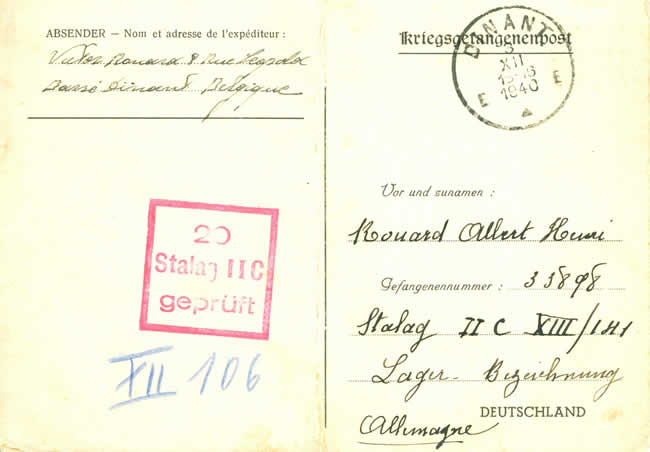 ABSENDER – Nom et adresse de l'expéditeur :
Victor Rouard 8 Rue Léopold
Dinant Belgique
20
Stalag II C
geprüft
XII 106
Kriegsgefangenenpost
DINANT
3
XII
1940
E E
Vor und zunamen :
Rouard Albert Henri
Gefangenennummer : 33898
Stalag II C XIII/181
Lager - Bezeichnung
DEUTSCHLAND
Allemagne